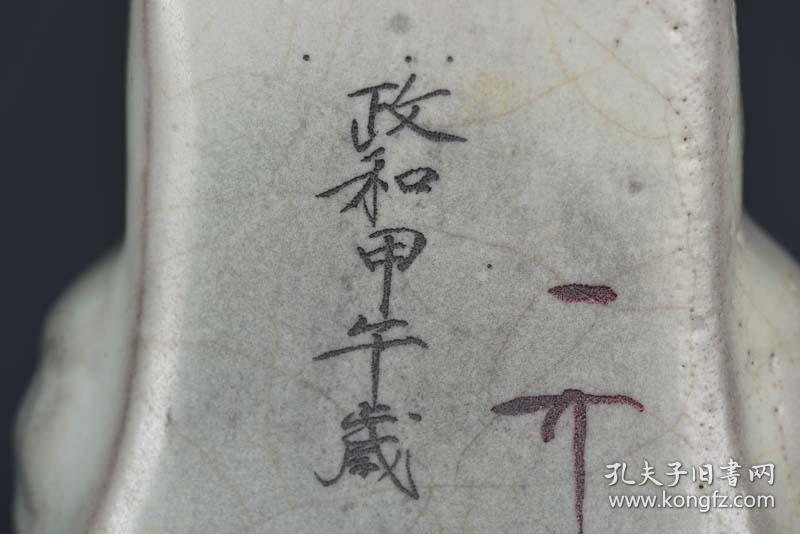 政和甲午歲
孔夫子旧書网
www.kongfz.com